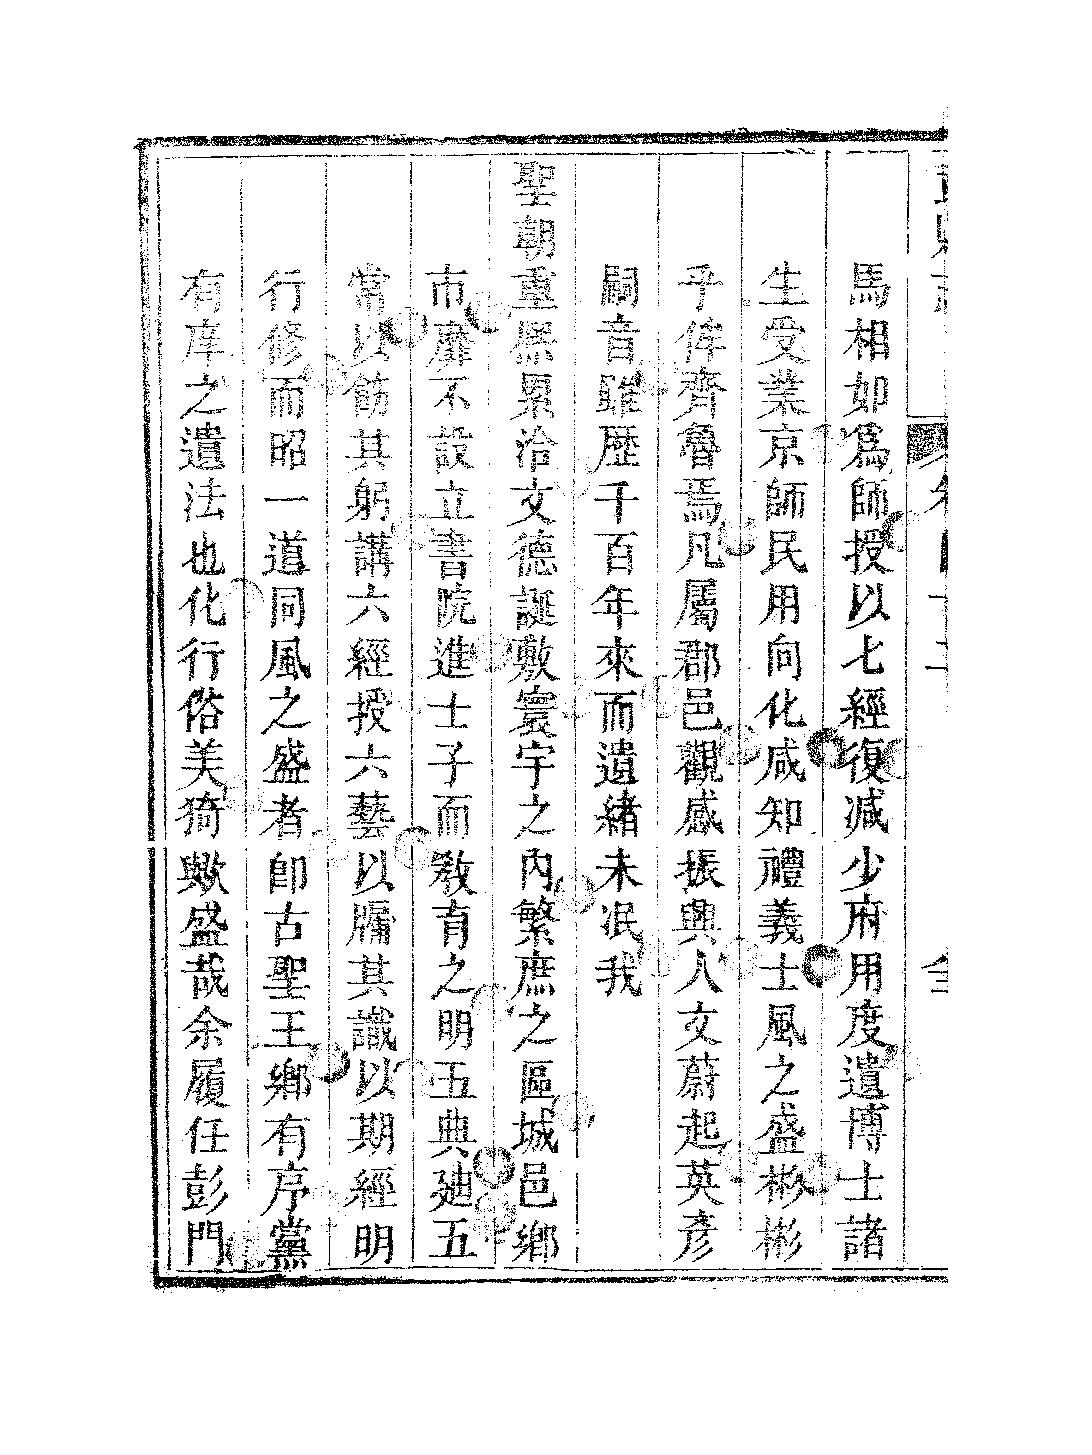 馬相如爲師授以七經復減少府用度遺博士諸
生受業京師民用向化咸知禮義士風之盛彬彬
乎侔齊魯焉凡屬郡邑觀感振興人文蔚起英彥
嗣音雖歷千百年來而遺緒未泯我
聖朝重熙累洽文德誕敷寰宇之內繁庶之區城邑鄉
市靡不設立書院進士子而教育之明五典廸五
常以飭其躬講六經授六藝以牖其識以期經明
行修而昭一道同風之盛者卽古聖王鄉有序黨
有庠之遺法也化行俗美猗歟盛哉余履任彭門